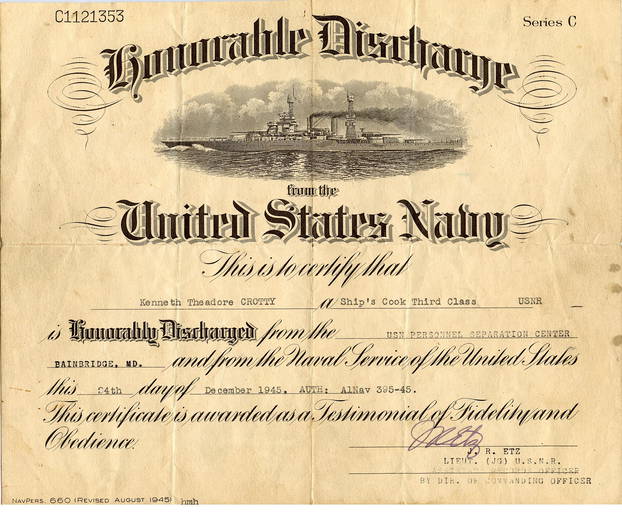 C1121353
Series C
Honorable Discharge
from the
United States Navy
This is to certify that
Kenneth Theadore CROTTY a Ship's Cook Third Class USNR
is Honorably Discharged from the USN PERSONNEL SEPARATION CENTER
BAINBRIDGE, MD. and from the Naval Service of the United States
this 24th day of December 1945. AUTH: AlNav 395-45.
This certificate is awarded as a Testimonial of Fidelity and
Obedience.
J. R. ETZ
LIEUT. (JG) U.S.N.R.
RECORDS OFFICER
BY DIR. OF COMMANDING OFFICER
NAVPERS. 660 (REVISED AUGUST 1945) hmh